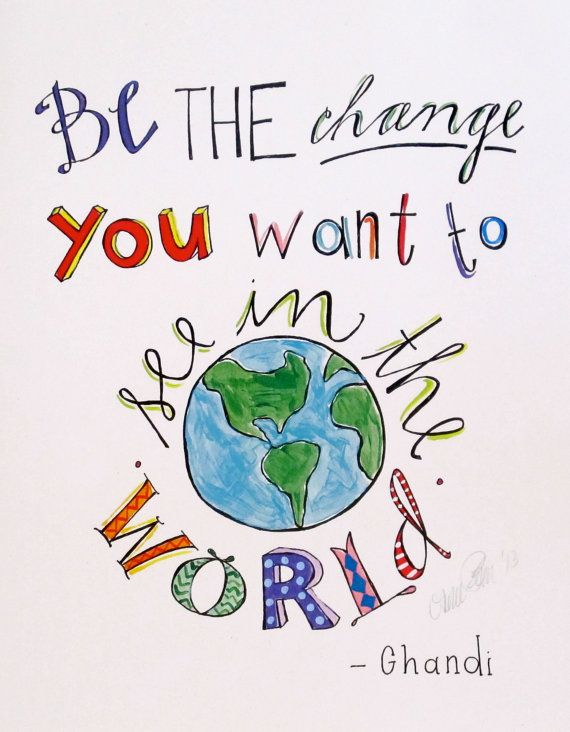 Be THE change
You want to
see in the
WORLD
- Ghandi
'13